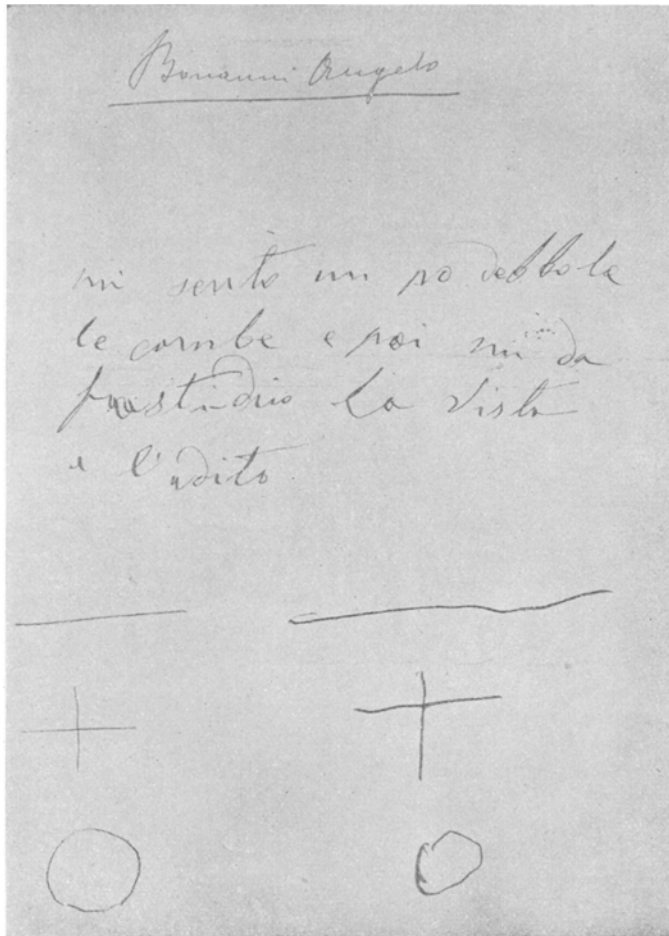 Bonanni Angelo
mi sento un po debbole
le combe e poi mi da
frastudio la vista
e l'udito